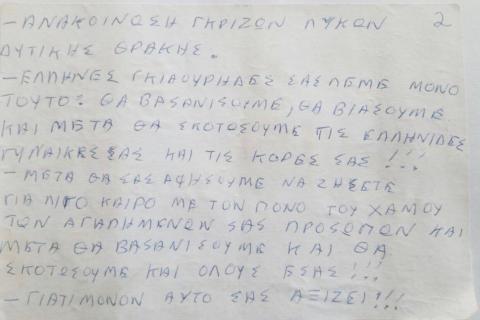 - ΑΝΑΚΟΙΝΩΣΗ ΓΚΡΙΖΩΝ ΛΥΚΩΝ 2
ΔΥΤΙΚΗΣ ΘΡΑΚΗΣ.
- ΕΛΛΗΝΕΣ ΓΚΙΑΟΥΡΗΔΕΣ ΣΑΣ ΛΕΜΕ ΜΟΝΟ
ΤΟΥΤΟ: ΘΑ ΒΑSΑΝΙΣΟΥΜΕ, ΘΑ ΒΙΑΣΟΥΜΕ
ΚΑΙ ΜΕΤΑ ΘΑ ΣΚΟΤΩΣΟΥΜΕ ΤΙΣ ΕΛΛΗΝΙΔΕΣ
ΓΥΝΑΙΚΕΣ ΣΑΣ ΚΑΙ ΤΙΣ ΚΟΡΕΣ ΣΑΣ !!!
- ΜΕΤΑ ΘΑ ΣΑΣ ΑΦΗΣΟΥΜΕ ΝΑ ΖΗΣΕΤΕ
ΓΙΑ ΛΙΓΟ ΚΑΙΡΟ ΜΕ ΤΟΝ ΠΟΝΟ ΤΟΥ ΧΑΜΟΥ
ΤΩΝ ΑΓΑΠΗΜΕΝΩΝ ΣΑΣ ΠΡΟΣΩΠΩΝ ΚΑΙ
ΜΕΤΑ ΘΑ ΒΑSΑΝΙΣΟΥΜΕ ΚΑΙ ΘΑ
ΣΚΟΤΩΣΟΥΜΕ ΚΑΙ ΟΛΟΥΣ ΕΣΑΣ !!!
- ΓΙΑΤΙ ΜΟΝΟΝ ΑΥΤΟ ΣΑΣ ΑΞΙΖΕΙ !!!